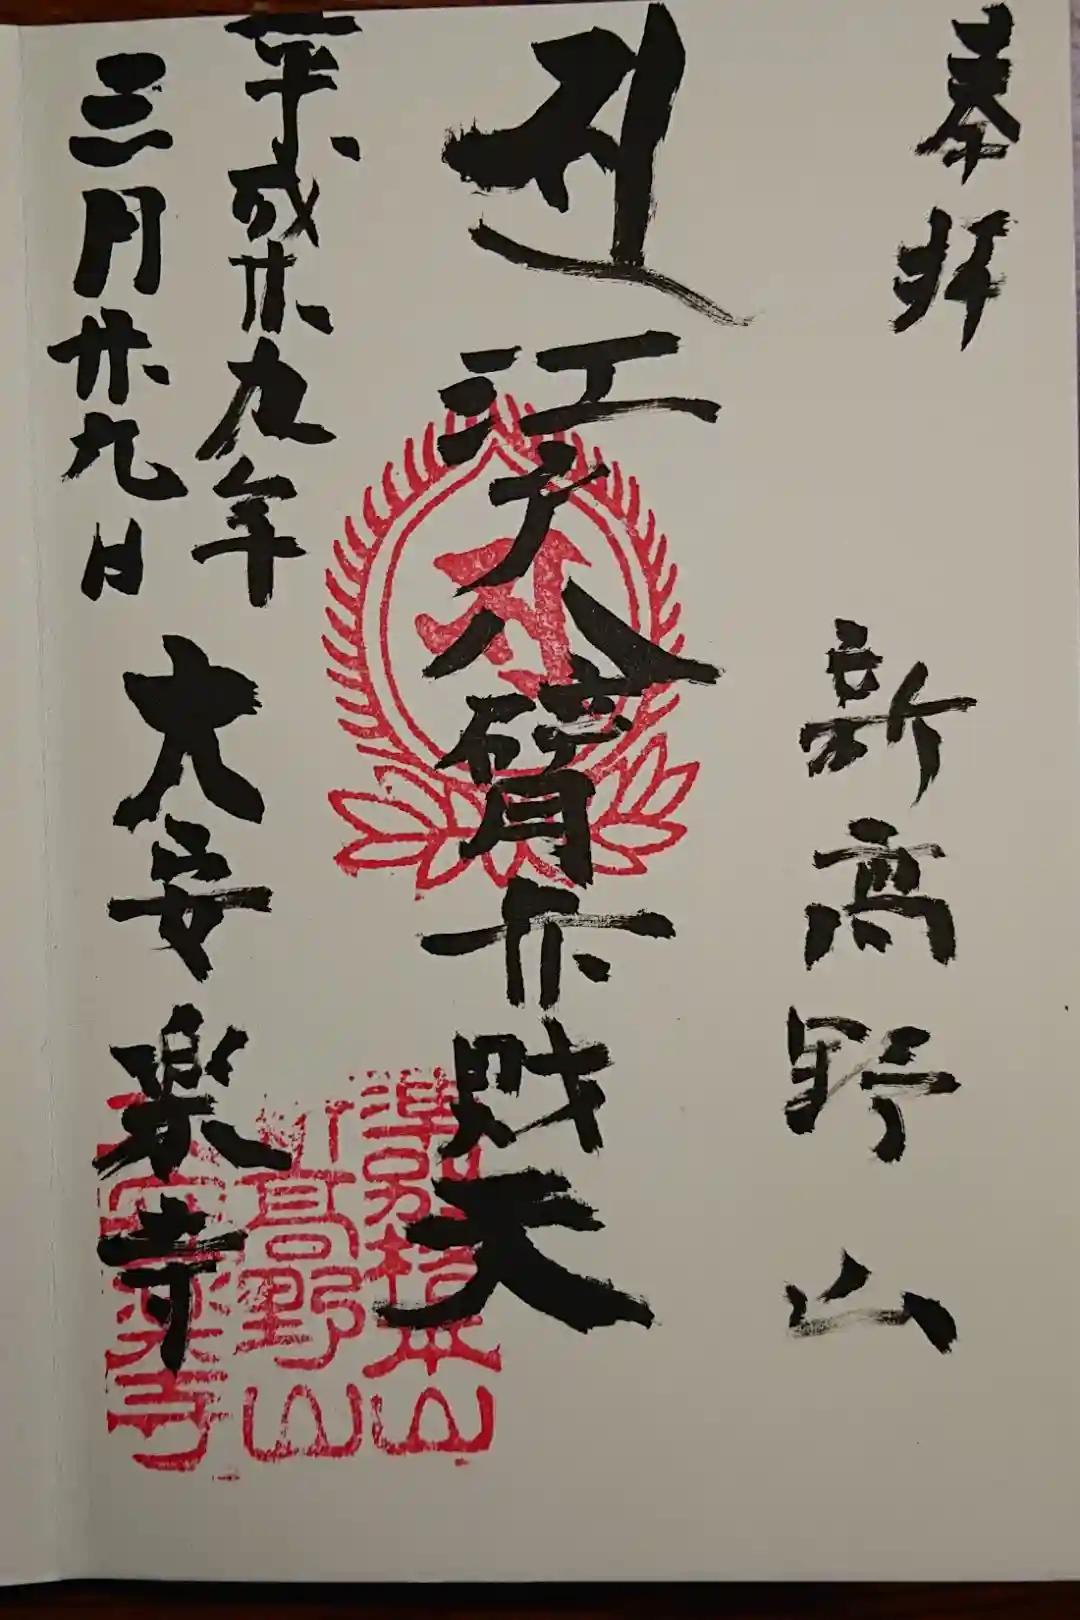 奉拝
新高野山
江戸八臂弁財天
平成廾九年
三月廾九日
大安楽寺
準別格本山
新高野山
大安楽寺